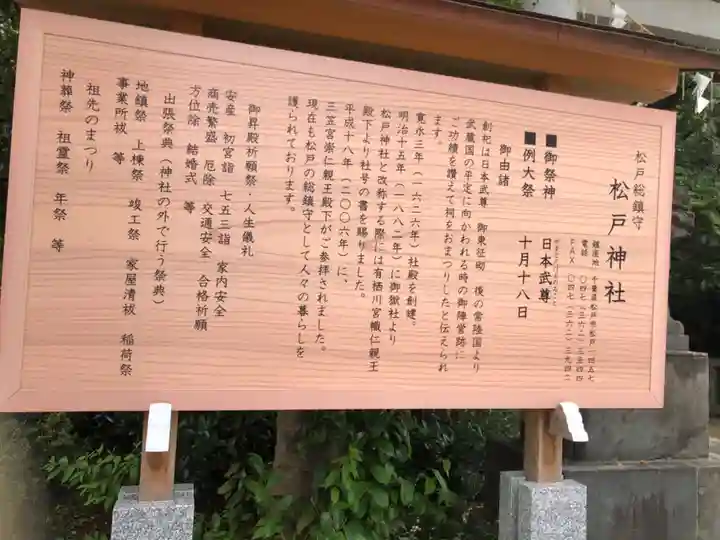 松戸総鎮守
松戸神社
鎮座地 千葉県松戸市松戸一四五七
電話 〇四七(三六二)三五四四
FAX 〇四七(三六二)三九四二
■御祭神 日本武尊
やまとたけるのみこと
■例大祭 十月十八日
御由諸
創祀は日本武尊 御東征砌 後の常陸国より
武蔵国の平定に向かわれる時の御陣営跡に
ご功績を讃えて祠をおまつりしたと伝えられ
ます。
寛永三年(一六二六年)社殿を創建。
明治十五年(一八八二年)に御嶽社より
松戸神社と改称する際には有栖川宮幟仁親王
殿下より社号の書を賜りました。
平成十八年(二〇〇六年)に、
三笠宮崇仁親王殿下がご参拝されました。
現在も松戸の総鎮守として人々の暮らしを
護られております。
御昇殿祈願祭・人生儀礼
安産 初宮詣 七五三詣 家内安全
商売繁盛 厄除 交通安全 合格祈願
方位除 結婚式 等
出張祭典(神社の外で行う祭典)
地鎮祭 上棟祭 竣工祭 家屋清祓 稲荷祭
事業所祓 等
祖先のまつり
神葬祭 祖霊祭 年祭 等